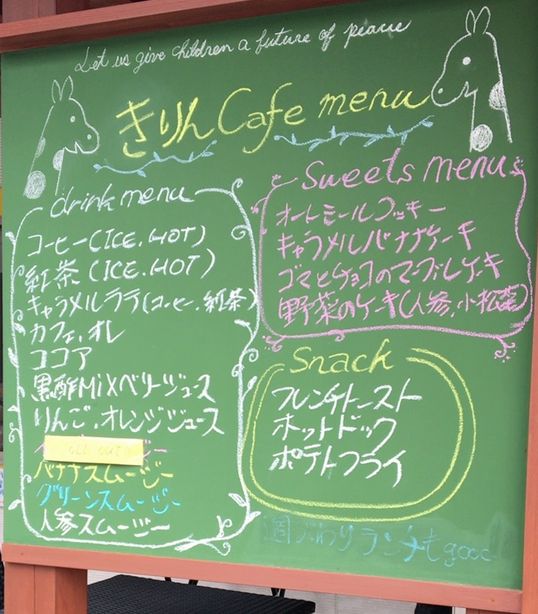 Let us give children a future of peace
きりん Cafe menu
drink menu
コーヒー(ICE.HOT)
紅茶(ICE.HOT)
キャラメルラテ(コーヒー.紅茶)
カフェ.オレ
ココア
黒酢MiXベリージュース
りんご.オレンジジュース
バナナスムージー
グリーンスムージー
人参スムージー
Sweets menu
オートミールクッキー
キャラメルバナナケーキ
ゴマとチョコのマーブルケーキ
野菜のケーキ(人参.小松菜)
Snack
フレンチトースト
ホットドック
ポテトフライ
週がわりランチもgood